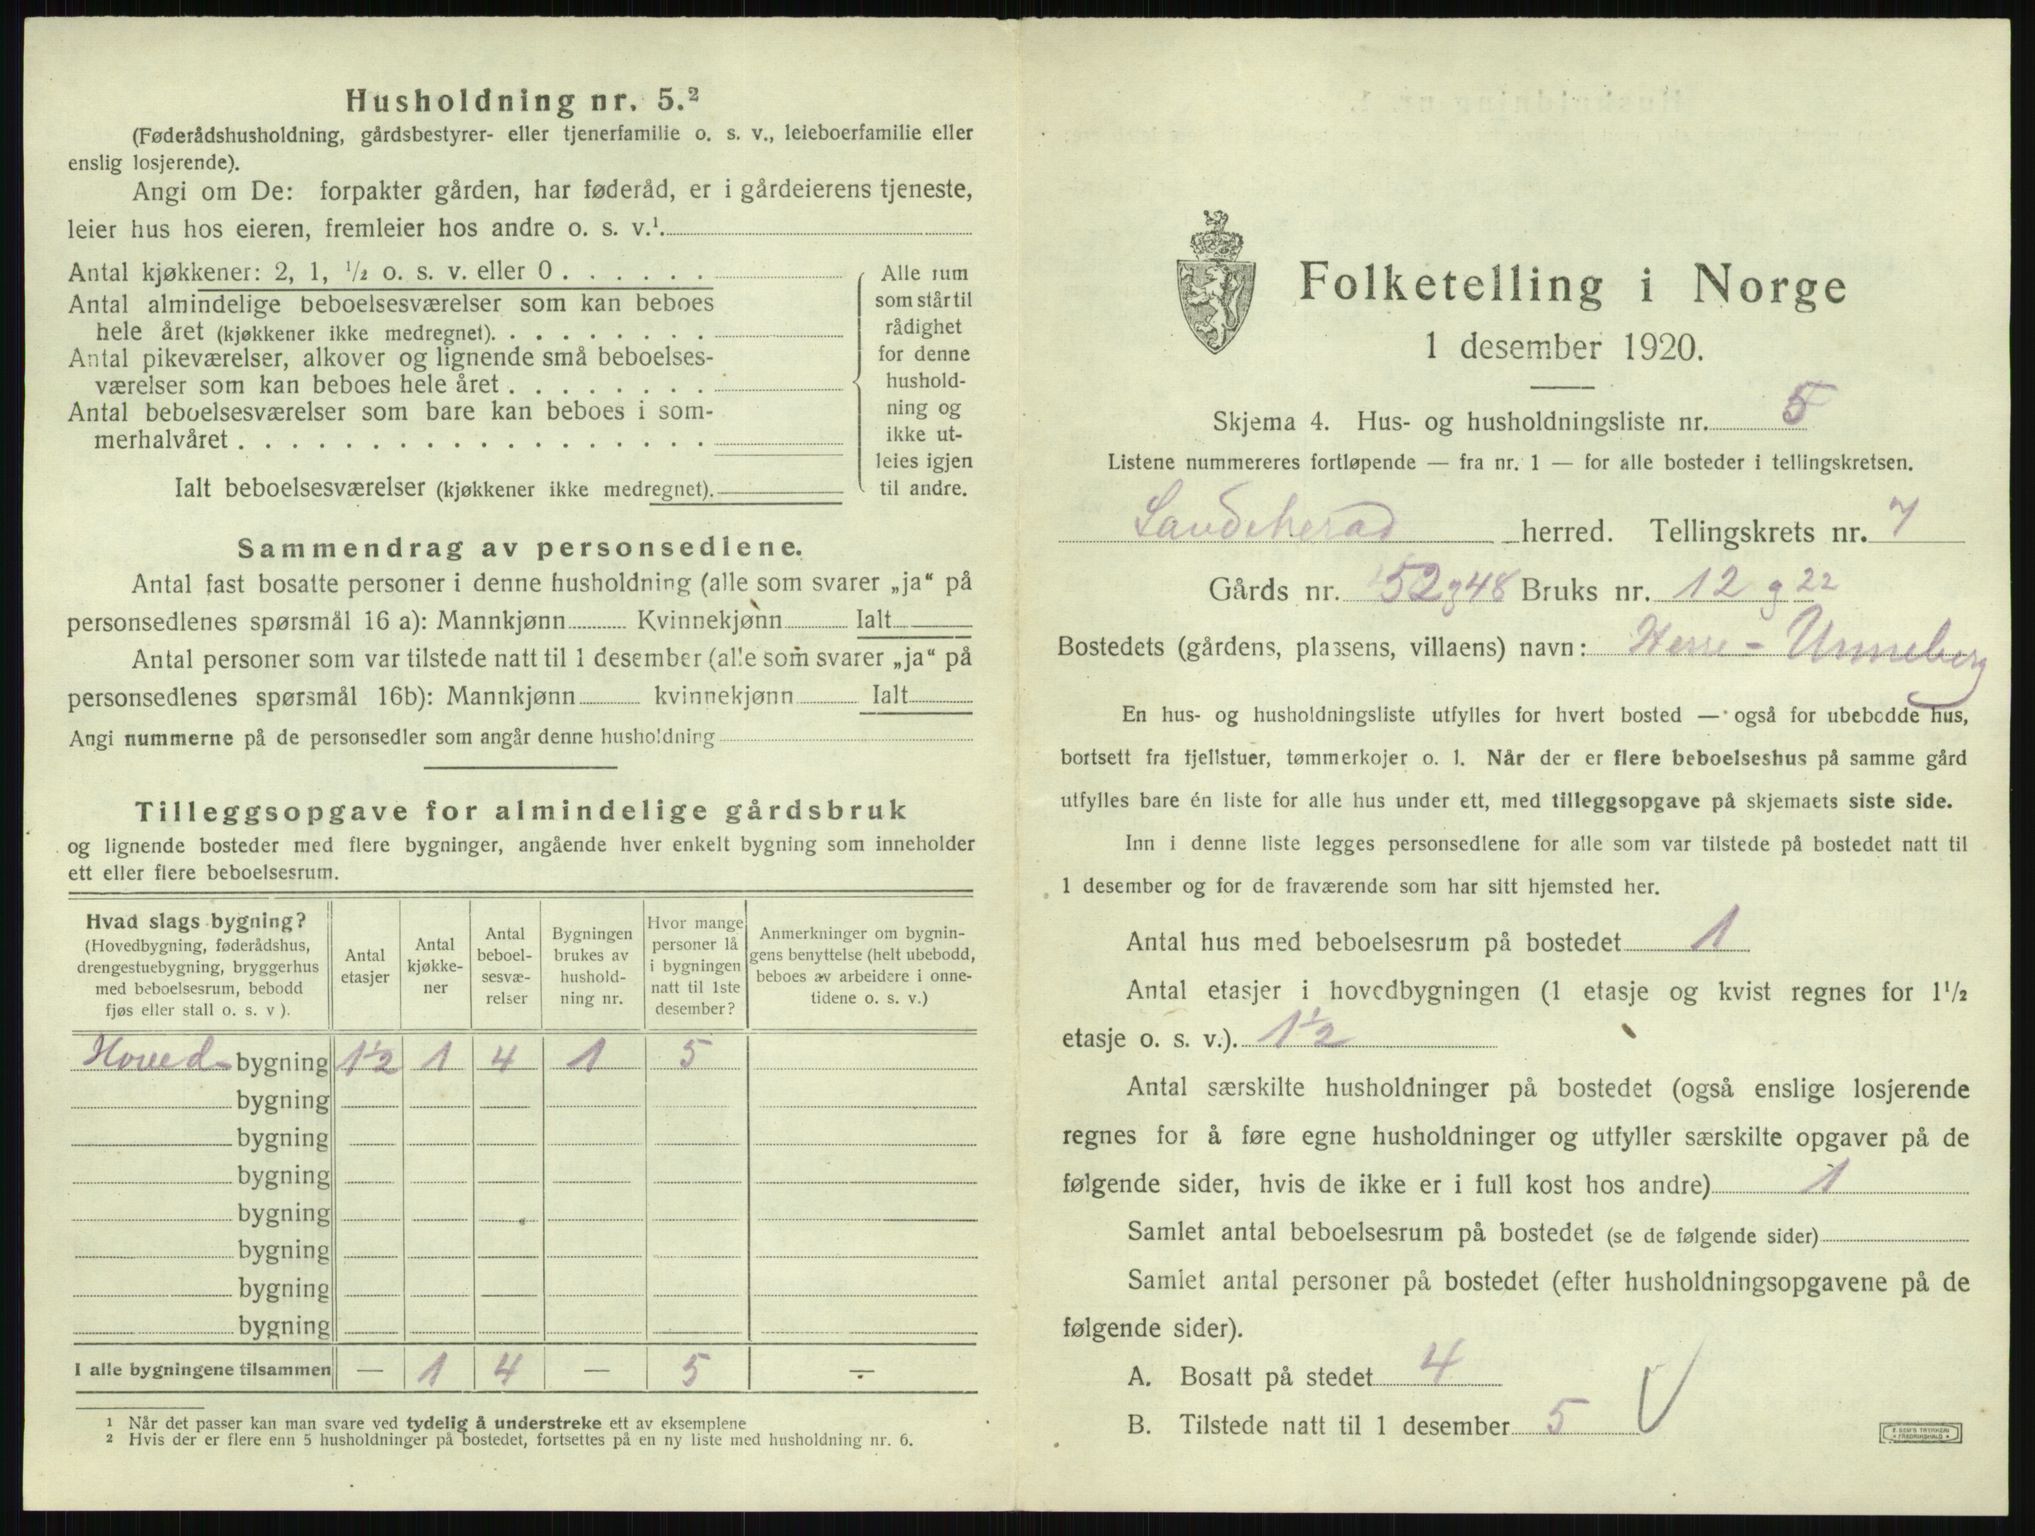 Husholdning nr. 5.²
(Føderådshusholdning, gårdsbestyrer- eller tjenerfamilie o. s. v., leieboerfamilie eller
enslig losjerende).
Angi om De: forpakter gården, har føderåd, er i gårdeierens tjeneste,
leier hus hos eieren, fremleier hos andre o. s. v.¹
Antal kjøkkener: 2, 1, ½ o. s. v. eller 0 . . . . . .
Antal almindelige beboelsesværelser som kan beboes
hele året (kjøkkener ikke medregnet). . . . . . . .
Antal pikeværelser, alkover og lignende små beboelses-
værelser som kan beboes hele året . . . . . . . .
Antal beboelsesværelser som bare kan beboes i som-
merhalvåret . . . . . . . . . . . . . . . . . .
Ialt beboelsesværelser (kjøkkener ikke medregnet).
Alle rum
som står til
rådighet
for denne
hushold-
ning og
ikke ut-
leies igjen
til andre.
Sammendrag av personsedlene.
Antal fast bosatte personer i denne husholdning (alle som svarer „ja“ på
personsedlenes spørsmål 16 a): Mannkjønn Kvinnekjønn Ialt
Antal personer som var tilstede natt til 1 desember (alle som svarer „ja“ på
personsedlenes spørsmål 16b): Mannkjønn kvinnekjønn Ialt
Angi nummerne på de personsedler som angår denne husholdning
Tilleggsopgave for almindelige gårdsbruk
og lignende bosteder med flere bygninger, angående hver enkelt bygning som inneholder
ett eller flere beboelsesrum.
Hvad slags bygning?
(Hovedbygning, føderådshus,
drengestuebygning, bryggerhus
med beboelsesrum, bebodd
fjøs eller stall o. s. v ).
Antal
etasjer
Antal
kjøkke-
ner
Antal
beboel-
sesvæ-
relser
Bygningen
brukes av
hushold-
ning nr.
Hvor mange
personer lå
i bygningen
natt til 1ste
desember?
Anmerkninger om bygnin-
gens benyttelse (helt ubebodd,
beboes av arbeidere i onne-
tidene o. s. v.)
Hoved- bygning 1½ 1 4 1 5
bygning
bygning
bygning
bygning
bygning
bygning
bygning
I alle bygningene tilsammen — 1 4 — 5 —
¹ Når det passer kan man svare ved tydelig å understreke ett av eksemplene
² Hvis der er flere enn 5 husholdninger på bostedet, fortsettes på en ny liste med husholdning nr. 6.
Folketelling i Norge
1 desember 1920.
Skjema 4. Hus- og husholdningsliste nr. 5
Listene nummereres fortløpende — fra nr. 1 — for alle bosteder i tellingskretsen.
Sandeherad herred. Tellingskrets nr. 7
Gårds nr. 52 og 48 Bruks nr. 12 og 22
Bostedets (gårdens, plassens, villaens) navn: Herre - Unneberg
En hus- og husholdningsliste utfylles for hvert bosted — også for ubebodde hus,
bortsett fra fjellstuer, tømmerkojer o. l. Når der er flere beboelseshus på samme gård
utfylles bare én liste for alle hus under ett, med tilleggsopgave på skjemaets siste side.
Inn i denne liste legges personsedlene for alle som var tilstede på bostedet natt til
1 desember og for de fraværende som har sitt hjemsted her.
Antal hus med beboelsesrum på bostedet 1
Antal etasjer i hovedbygningen (1 etasje og kvist regnes for 1½
etasje o. s. v.). 1½
Antal særskilte husholdninger på bostedet (også enslige losjerende
regnes for å føre egne husholdninger og utfyller særskilte opgaver på de
følgende sider, hvis de ikke er i full kost hos andre) 1
Samlet antal beboelsesrum på bostedet (se de følgende sider)
Samlet antal personer på bostedet (efter husholdningsopgavene på de
følgende sider).
A. Bosatt på stedet 4
B. Tilstede natt til 1 desember 5